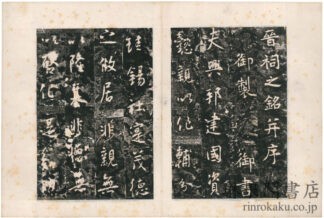 晉祠之銘并序
御製 御書
夫興邦建國資
懿親以作輔分
珪錫社寔茂德
之攸居非親無
以隆基非德無
以啓化是
書店
rinrokaku.co.jp